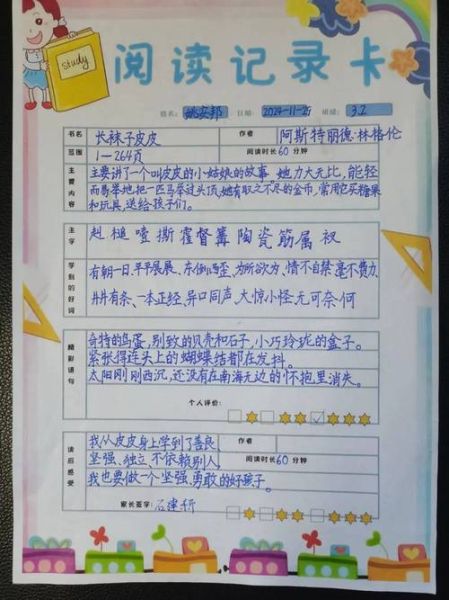 study
阅读记录卡
姓名: 姚安邦 日期: 2024-11-29 班级: 3.2
书名 长袜子皮皮 作者 阿斯特丽德·林格伦
范围 1—264页 阅读时长60分钟
主要内容
主要讲了一个叫皮皮的小姑娘的故事。她力大无比,能轻
而易举地把一匹马举过头顶,她有取之不尽的金币,常用它买糖果
和玩具,送给孩子们。
生字 赳 槌 噎 撕 霍 督 篝 陶 瓷 筋 属 衩
学到的好词
有朝一日、平平展展、东倒西歪、为所欲为、情不自禁、毫不费力
井井有条、一本正经、异口同声、大惊小怪、无可奈何
精彩语句
奇特的鸟蛋,别致的贝壳和石子,小巧玲珑的盒子。
紧张得连头上的蝴蝶结都在发抖。
太阳刚刚西沉,还没有在南海无边的怀抱里消失。
个人评价:
读后感受
我从皮皮身上学到了善良 作者
坚强、独立、不依赖别人, 阅读时长60分钟
我也要做一个坚强、勇敢的好孩子。
家长签字: